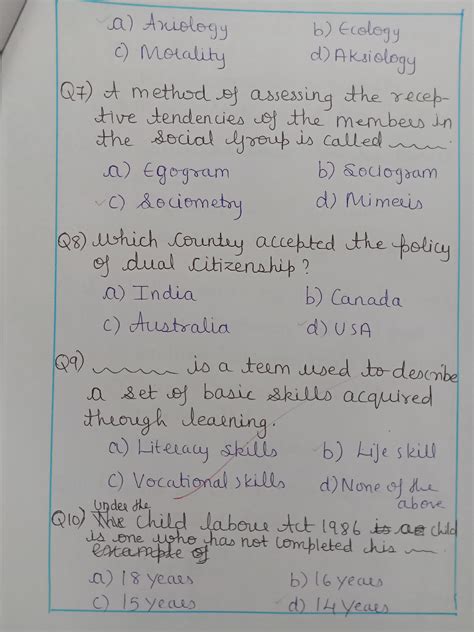 ✓a) Axiology b) Ecology
c) Morality d) Aksiology
Q7) A method of assessing the recep-
tive tendencies of the members in
the Social Group is called ____.
a) Egogram b) Sociogram
✓c) Sociometry d) Mimesis
Q8) Which Country accepted the policy
of dual Citizenship?
a) India b) Canada
c) Australia ✓d) USA
Q9) ____ is a term used to describe
a set of basic skills acquired
through learning.
a) Literacy skills ✓b) Life skill
c) Vocational skills d) None of the
above
under the
Q10) The Child labour Act 1986 child
is one who has not completed his ____
example of
a) 18 years b) 16 years
c) 15 years ✓d) 14 years